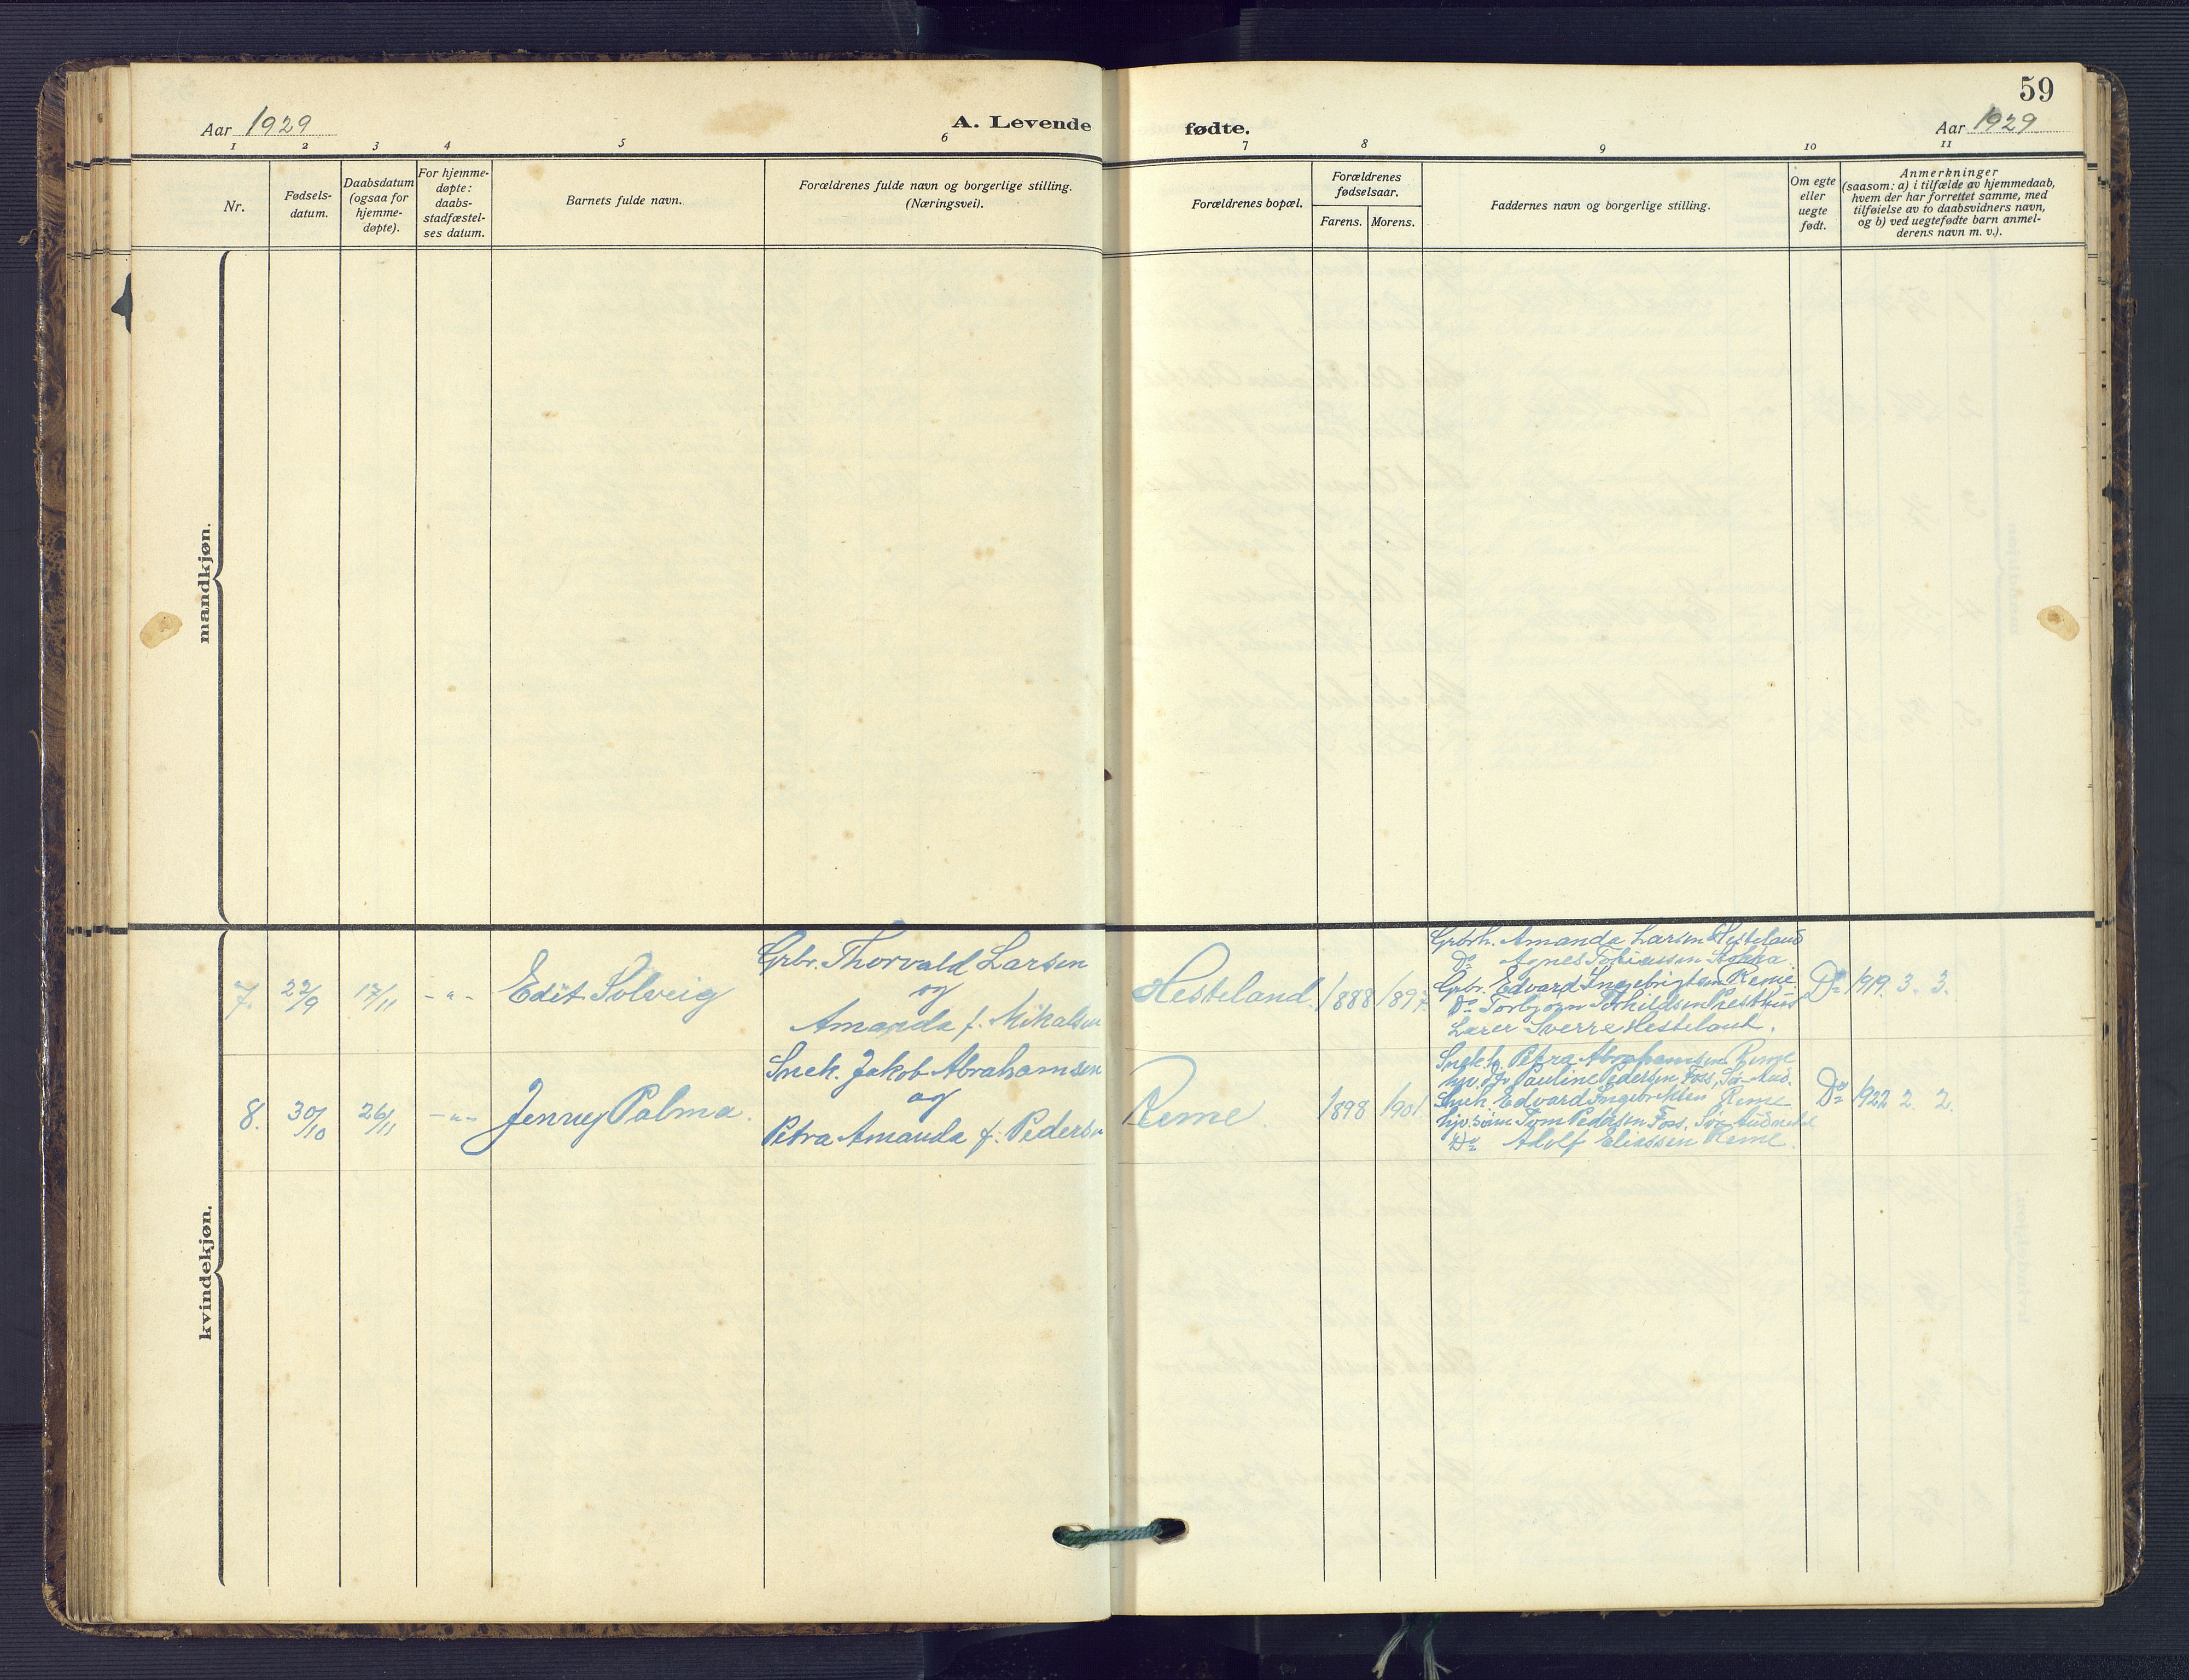 59
Aar 1929
A. Levende fødte.
Aar 1929
1 2 3 4 5 6 7 8 9 10 11
Nr.
Fødsels-
datum.
Daabsdatum
(ogsaa for
hjemme-
døpte).
For hjemme-
døpte:
daabs-
stadfæstel-
ses datum.
Barnets fulde navn.
Forældrenes fulde navn og borgerlige stilling.
(Næringsvei).
Forældrenes bopæl.
Forældrenes
fødselsaar.
Farens. Morens.
Faddernes navn og borgerlige stilling.
Om egte
eller
uegte
født.
Anmerkninger
(saasom: a) i tilfælde av hjemmedaab,
hvem der har forrettet samme, med
tilføielse av to daabsvidners navn,
og b) ved uegtefødte barn anmel-
derens navn m. v.).
mandkjøn.
kvindekjøn.
7. 22/9 17/11 - " - Edit Solveig
Grbr. Thorvald Larsen
og
Amanda f. Mikalsen
Hesteland. 1888 1897.
Grbrh. Amanda Larsen Hesteland
Do Agnes Tobiassen
Grbr. Edvard Ingebrigtsen Reme.
Do Torbjørn
Lærer Sverre Hesteland.
Do 1919. 3. 3.
8. 30/10 26/11 - " - Jenny Palma.
Snek. Jakob Abrahamsen
og
Petra Amanda f. Pedersen
Reme. 1898 1901.
Snekh. Petra Abrahamsen Reme
Pauline Pedersen Foss, Sø-Aud.
Snek. Edvard Ingebriktsen Reme
hjv. søn Tom Pedersen Foss, Sør Audnedal
Do Adolf Eliassen Reme.
Do 1922 2. 2.